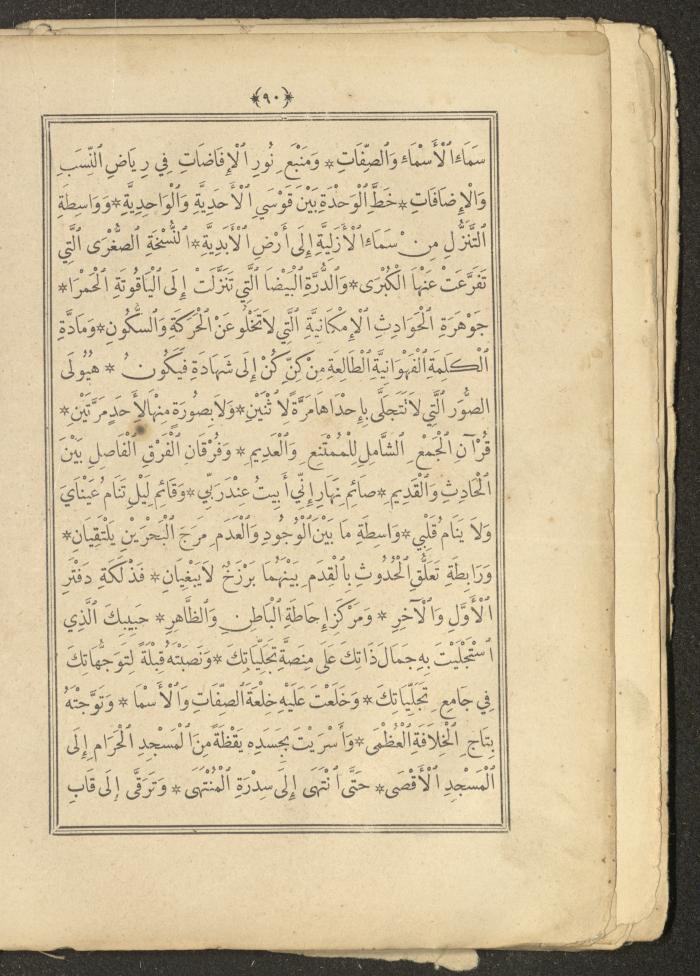 ﴿٩٠﴾
سَمَاءِ الْأَسْمَاءِ وَالصِّفَاتِ * وَمَنْبَعِ نُورِ الْإِفَاضَاتِ فِي رِيَاضِ النِّسَبِ
وَالْإِضَافَاتِ * خَطِّ الْوَحْدَةِ بَيْنَ قَوْسَيِ الْأَحَدِيَّةِ وَالْوَاحِدِيَّةِ * وَوَاسِطَةِ
التَّنَزُّلِ مِنْ سَمَاءِ الْأَزَلِيَّةِ إِلَى أَرْضِ الْأَبَدِيَّةِ * النُّسْخَةِ الصُّغْرَى الَّتِي
تَفَرَّعَتْ عَنْهَا الْكُبْرَى * وَالدُّرَّةِ الْبَيْضَا الَّتِي تَنَزَّلَتْ إِلَى الْيَاقُوتَةِ الْحَمْرَا *
جَوْهَرَةِ الْحَوَادِثِ الْإِمْكَانِيَّةِ الَّتِي لَا تَخْلُو عَنْ الْحَرَكَةِ وَالسُّكُونِ * وَمَادَّةِ
الْكَلِمَةِ الْفَهْوَانِيَّةِ الطَّالِعَةِ مِنْ كِنِّ كُنْ إِلَى شَهَادَةِ فَيَكُونُ * هَيُولَى
الصُّوَرِ الَّتِي لَا تَتَجَلَّى بِإِحْدَاهَا مَرَّةً لِاثْنَيْنِ * وَلَا بِصُورَةٍ مِنْهَا لِأَحَدٍ مَرَّتَيْنِ *
قُرْآنِ الْجَمْعِ الشَّامِلِ لِلْمُمْتَنِعِ وَالْعَدِيمِ * وَفُرْقَانِ الْفَرْقِ الْفَاصِلِ بَيْنَ
الْحَادِثِ وَالْقَدِيمِ * صَائِمِ نَهَارِ إِنِّي أَبِيتُ عِنْدَ رَبِّي * وَقَائِمِ لَيْلِ تَنَامُ عَيْنَايَ
وَلَا يَنَامُ قَلْبِي * وَاسِطَةِ مَا بَيْنَ الْوُجُودِ وَالْعَدَمِ مَرَجَ الْبَحْرَيْنِ يَلْتَقِيَانِ *
وَرَابِطَةِ تَعَلُّقِ الْحُدُوثِ بِالْقِدَمِ بَيْنَهُمَا بَرْزَخٌ لَا يَبْغِيَانِ * فَذْلَكَةِ دَفْتَرِ
الْأَوَّلِ وَالْآخِرِ * وَمَرْكَزِ إِحَاطَةِ الْبَاطِنِ وَالظَّاهِرِ * حَبِيبِكَ الَّذِي
اسْتَجْلَيْتَ بِهِ جَمَالَ ذَاتِكَ عَلَى مِنَصَّةِ تَجَلِّيَاتِكَ * وَنَصَبْتَهُ قِبْلَةً لِتَوَجُّهَاتِكَ
فِي جَامِعِ تَجَلِّيَاتِكَ * وَخَلَعْتَ عَلَيْهِ خِلْعَةَ الصِّفَاتِ وَالْأَسْمَا * وَتَوَّجْتَهُ
بِتَاجِ الْخِلَافَةِ الْعُظْمَى * وَأَسْرَيْتَ بِجَسَدِهِ يَقْظَةً مِنَ الْمَسْجِدِ الْحَرَامِ إِلَى
الْمَسْجِدِ الْأَقْصَى * حَتَّى انْتَهَى إِلَى سِدْرَةِ الْمُنْتَهَى * وَتَرَقَّى إِلَى قَابِ